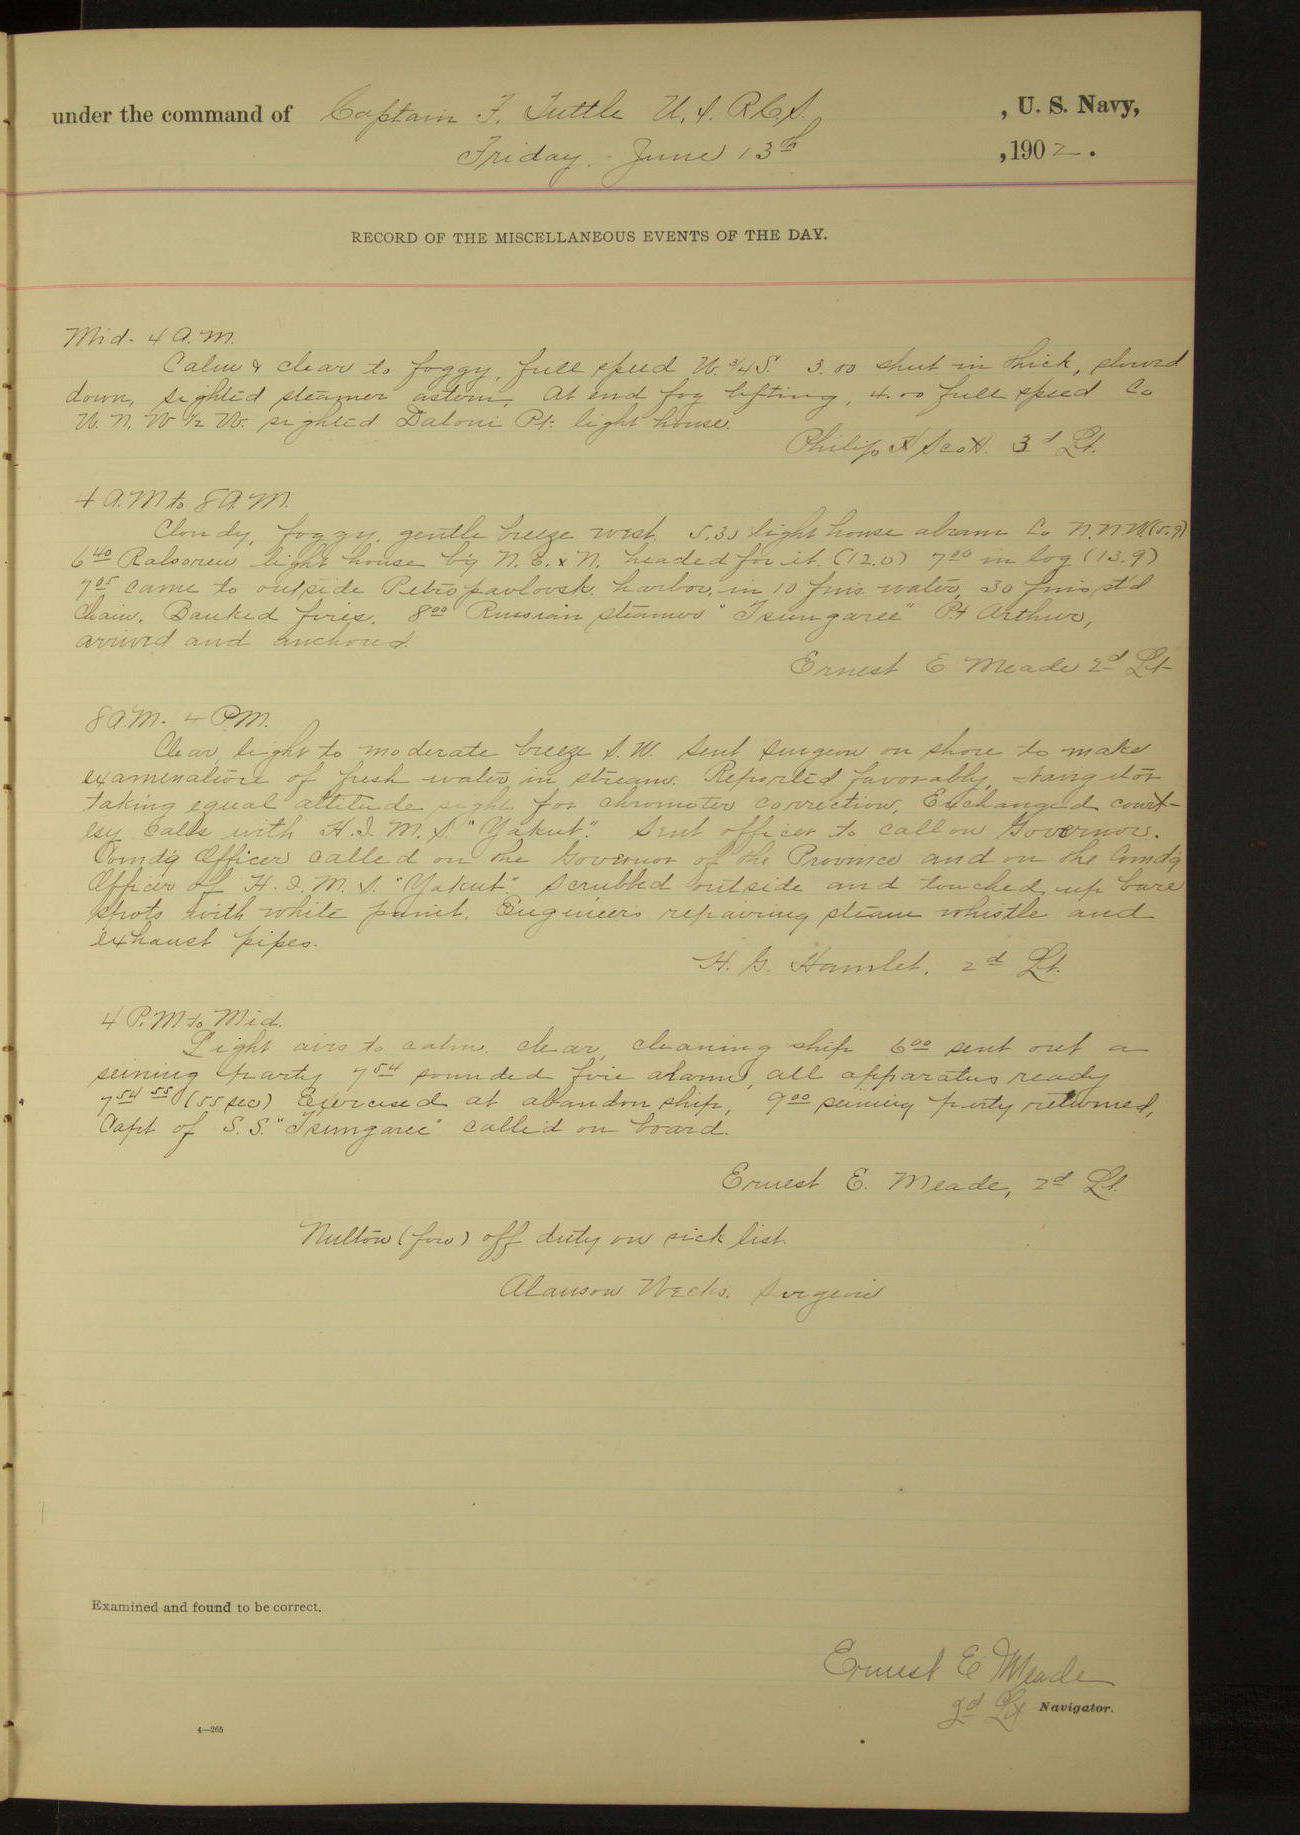 under the command of Captain F. Tuttle U. S. R. C. S. , U. S. Navy,
Friday. June 13th ,1902.
RECORD OF THE MISCELLANEOUS EVENTS OF THE DAY.
Mid. 4 A.M.
Calm & clear to foggy, full speed W. 3/4 S. 3.00 shut in thick, slowed
down, sighted steamer astern. At end fog lifting, 4.00 full speed Co
W. N. W 1/2 W. sighted Daloni Pt. light house.
Philip H Scott. 3d Lt.
4 A.M to 8 A.M.
Cloudy, foggy, gentle breeze west. 5.30 light house abeam Co N.N.W. (5.9)
6 40 light house b'g N. E. x N. headed for it. (12.0) 7 00 in log (13.9)
7 05 came to outside Petropavlovsk harbor, in 10 fms. water, 30 fms st'd
chain. Banked fires. 8 00 Russian steamer "Tsungaree" Pt Arthur,
arrived and anchored.
Ernest E Meade 2d Lt
8 A.M. 4 P.M.
Clear, light to moderate breeze S. W. Sent surgeon on shore to make
examenatiore of fresh water in stream. Reported favorably, navigator
taking equal altitude sights for chromoter correction. Exchanged court-
esy calls with H. I. M. S. "Yakut". Sent officer to call on Governor.
Comd'g Officer called on the Governor of the Province and on the Comd'g
Officer of H. I. M. S. "Yakut". Scrubbed outside and touched up bare
spots with white paint. Engineers repairing steam whistle and
exhaust pipes.
H. G. Hamlet. 2d Lt.
4 P.M to Mid.
Light airs to calm. clear, cleaning ship 6 00 sent out a
seining party 7 54 sounded fire alarm, all apparatus ready
7 54 55 (55 sec) Exercised at abandon ship, 9 00 seining party returned,
Capt of S. S. "Tsungaree" called on board.
Ernest E. Meade, 2d Lt.
Nulton (fow) off duty on sick list
Alanson Weeks. Surgeon
Examined and found to be correct.
Ernest E Meade
2d Lt Navigator.
4—265